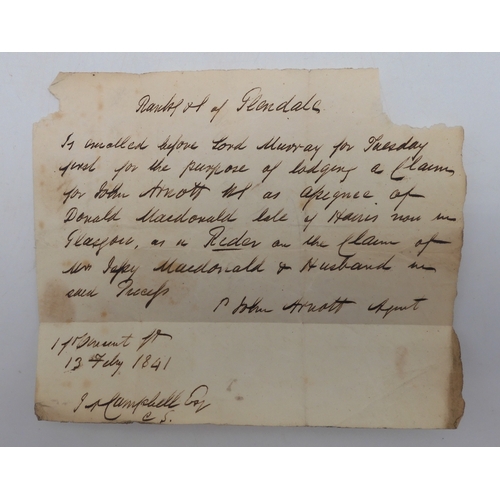 Rankg &c of Glendale
Is enrolled before Lord Murray for Tuesday
first for the purpose of lodging a Claim
for John Arnott as assignee of
Donald Macdonald late of Harris now in
Glasgow, as a Rider on the Claim of
Mrs Macdonald & Husband in
said Process
John Arnott Agent
Vincent St
13 Feby 1841
Campbell Esq
C.S.